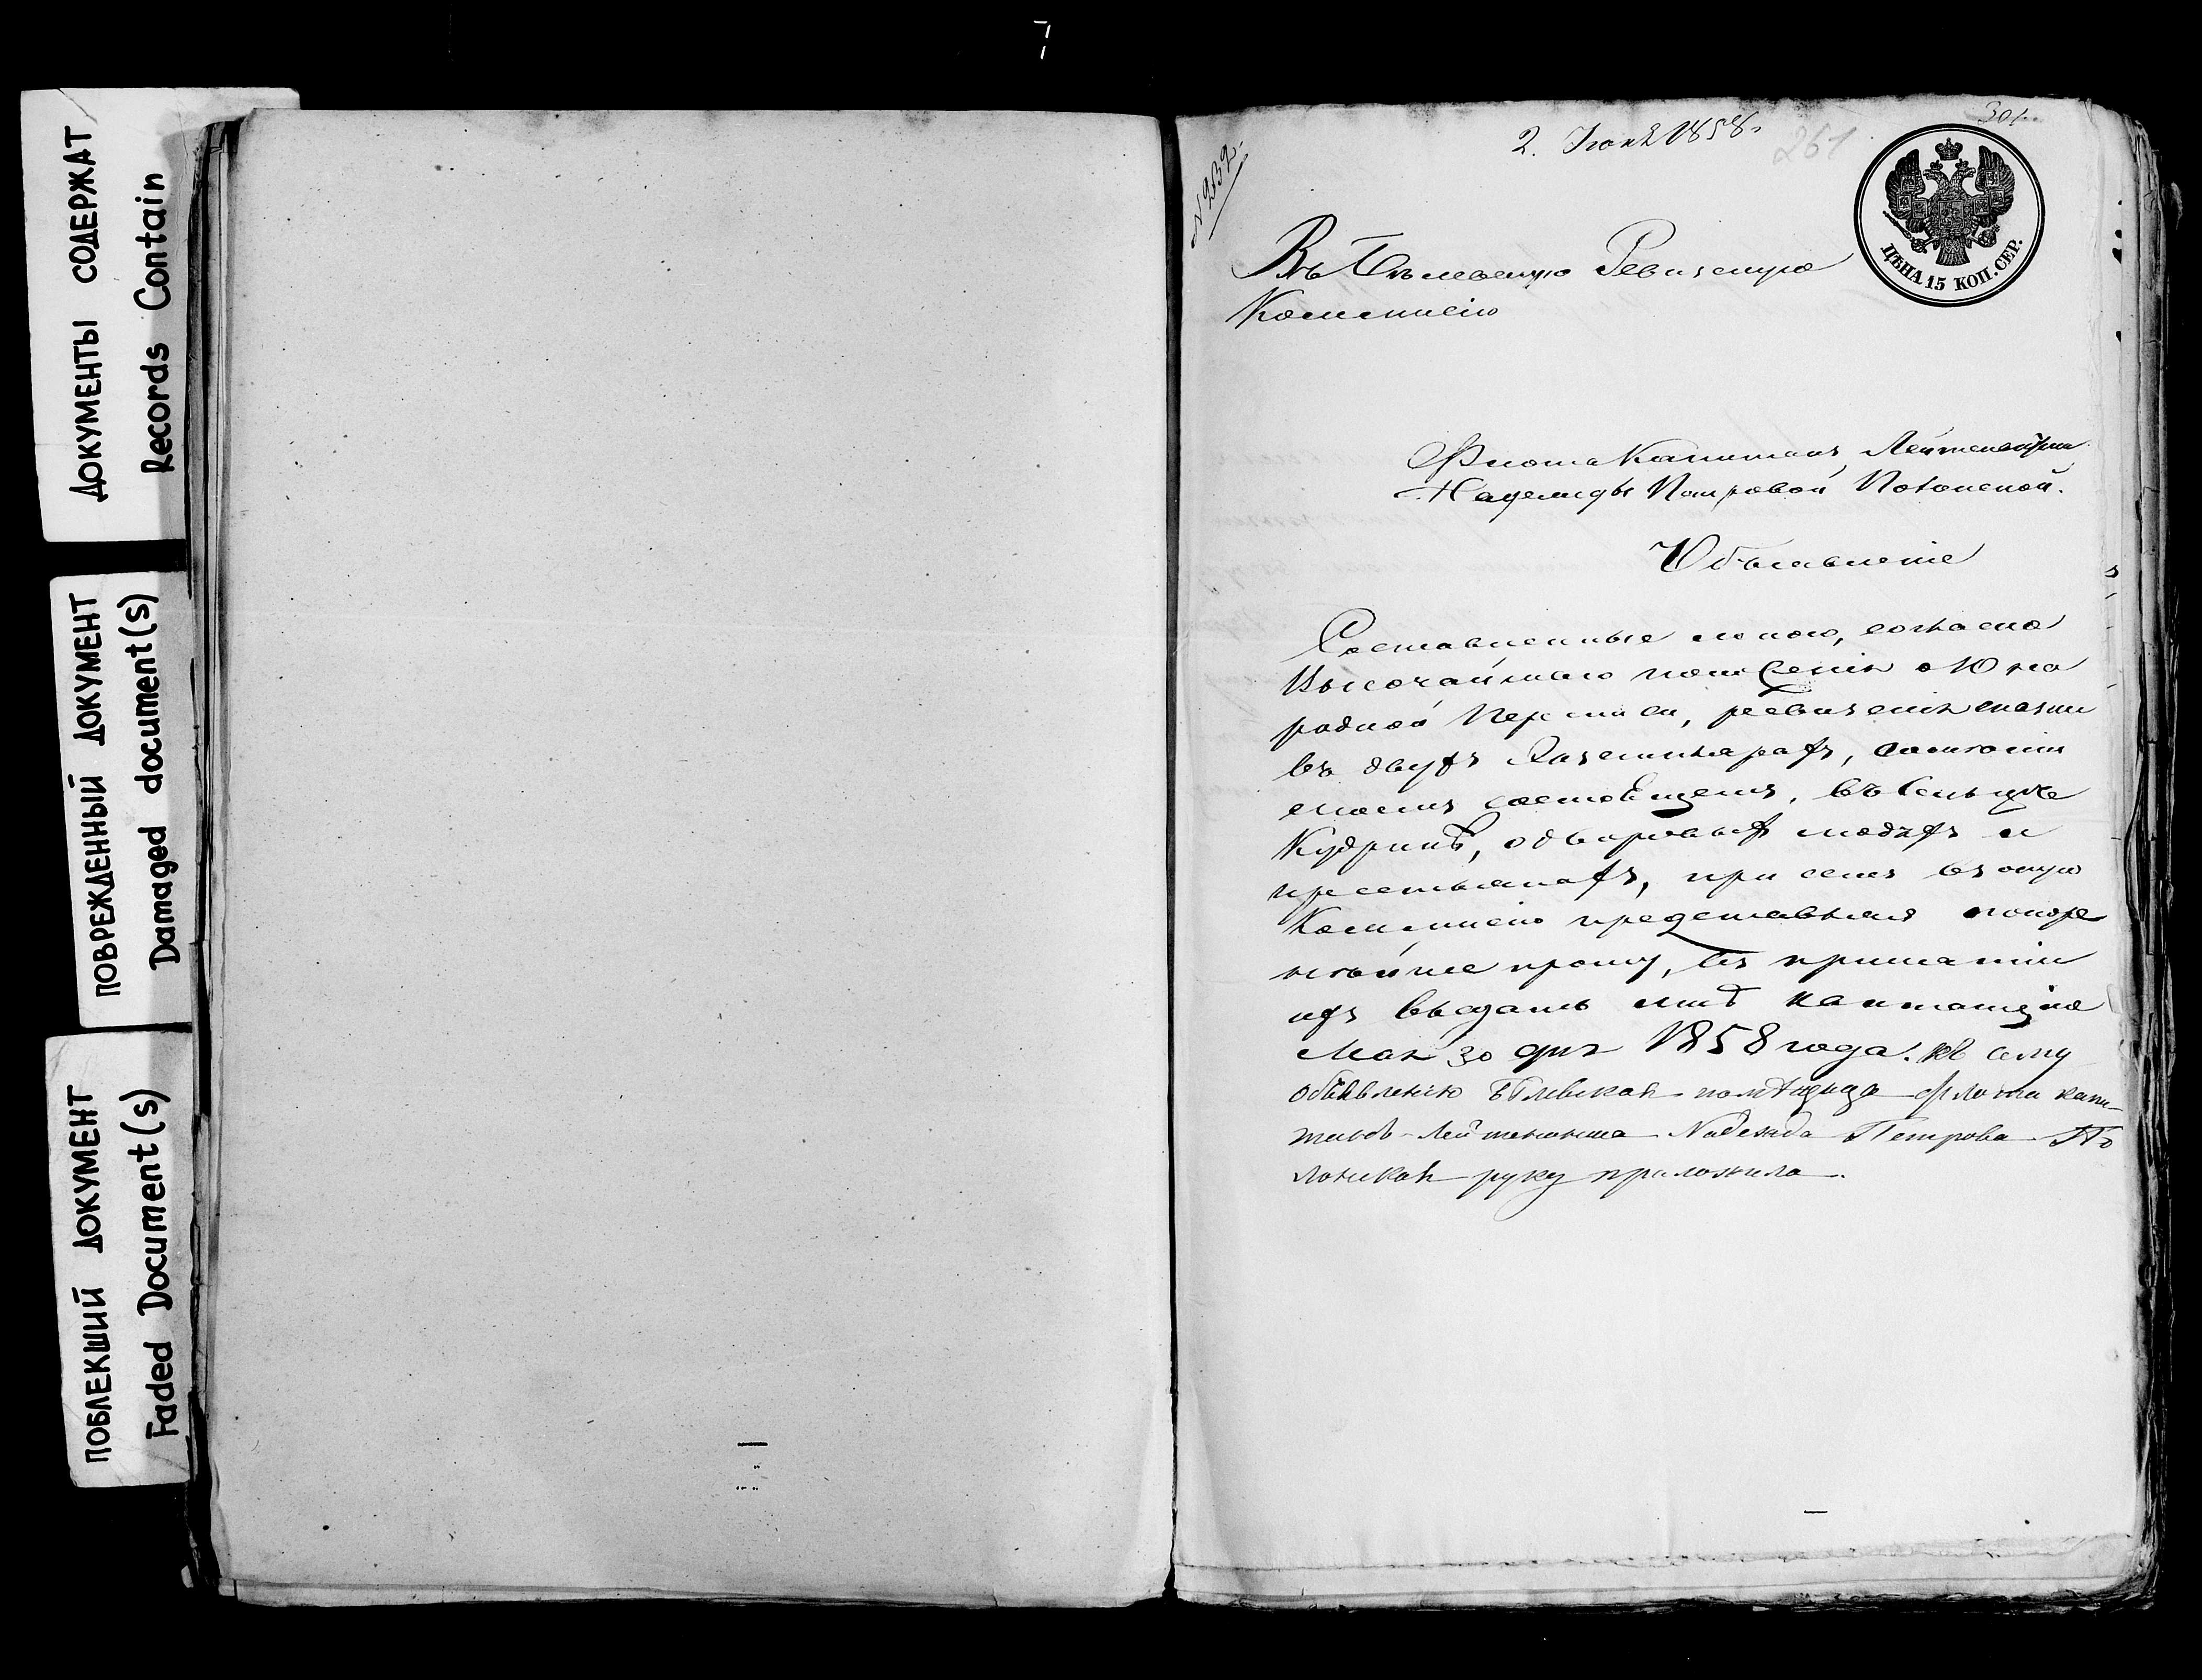 7
ДОКУМЕНТЫ СОДЕРЖАТ
Records Contain
ПОВРЕЖДЕННЫЙ ДОКУМЕНТ
Damaged document(s)
ПОБЛЕКШИЙ ДОКУМЕНТ
Faded Document(s)
2. Іюня 1858.
261
301
ЦѢНА 15 КОП. СЕР.
Въ Бѣлевскую Ревизскую
Коммисію
Флота Капитанъ Лейтенантши
Надежды Петровой Полонской.
Объявленіе
Составленные мною, согласно
Высочайшаго повеленія о 10 на
родной Переписи, ревизскія сказки
въ двухъ Экземплярахъ, о
состоящемъ, въ сельце
Кудринѣ, о дворовыхъ людяхъ и
крестьянахъ, при семъ въ оную
Коммисію представляя покор
нѣйше прошу, въ принятіи
ихъ выдать мнѣ квитанцію
Мая 30 дня 1858 года. Къ сему
объявленію Бѣлевская помѣщица флота капи-
танъ-Лейтенантша Надежда Петрова По
лонская руку приложила.